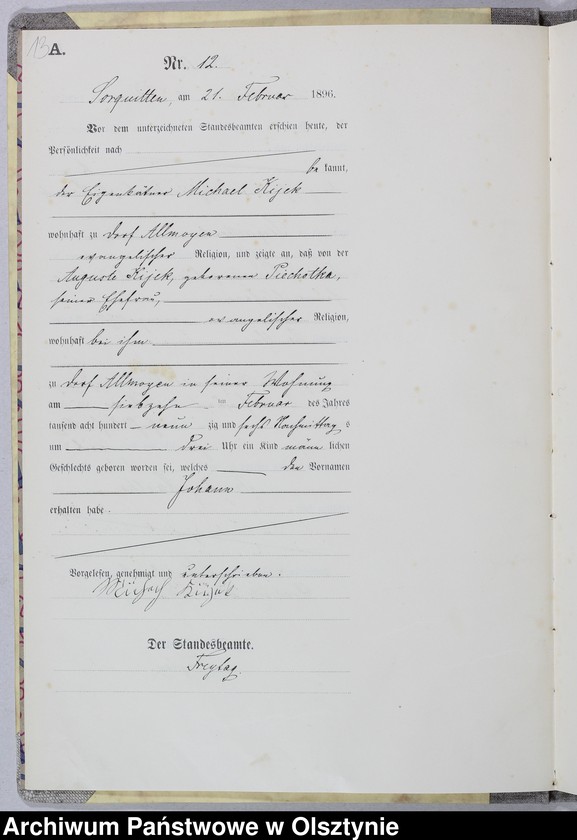 13
A.
Nr. 12.
Sorquitten, am 21. Februar 1896.
Vor dem unterzeichneten Standesbeamten erschien heute, der
Persönlichkeit nach
be kannt,
der Eigenkätner Michael Kijek
wohnhaft zu Dorf Allmoyen
evangelischer Religion, und zeigte an, daß von der
Auguste Kijek, geborenen Piechotka,
seiner Ehefrau,
evangelischer Religion,
wohnhaft bei ihm
zu Dorf Allmoyen in seiner Wohnung
am siebzehn ten Februar des Jahres
tausend acht hundert neun zig und sechs Nachmittag s
um drei Uhr ein Kind männ lichen
Geschlechts geboren worden sei, welches den Vornamen
Johann
erhalten habe.
Vorgelesen, genehmigt und unterschrieben.
Der Standesbeamte.
Freytag.
Archiwum Państwowe w Olsztynie